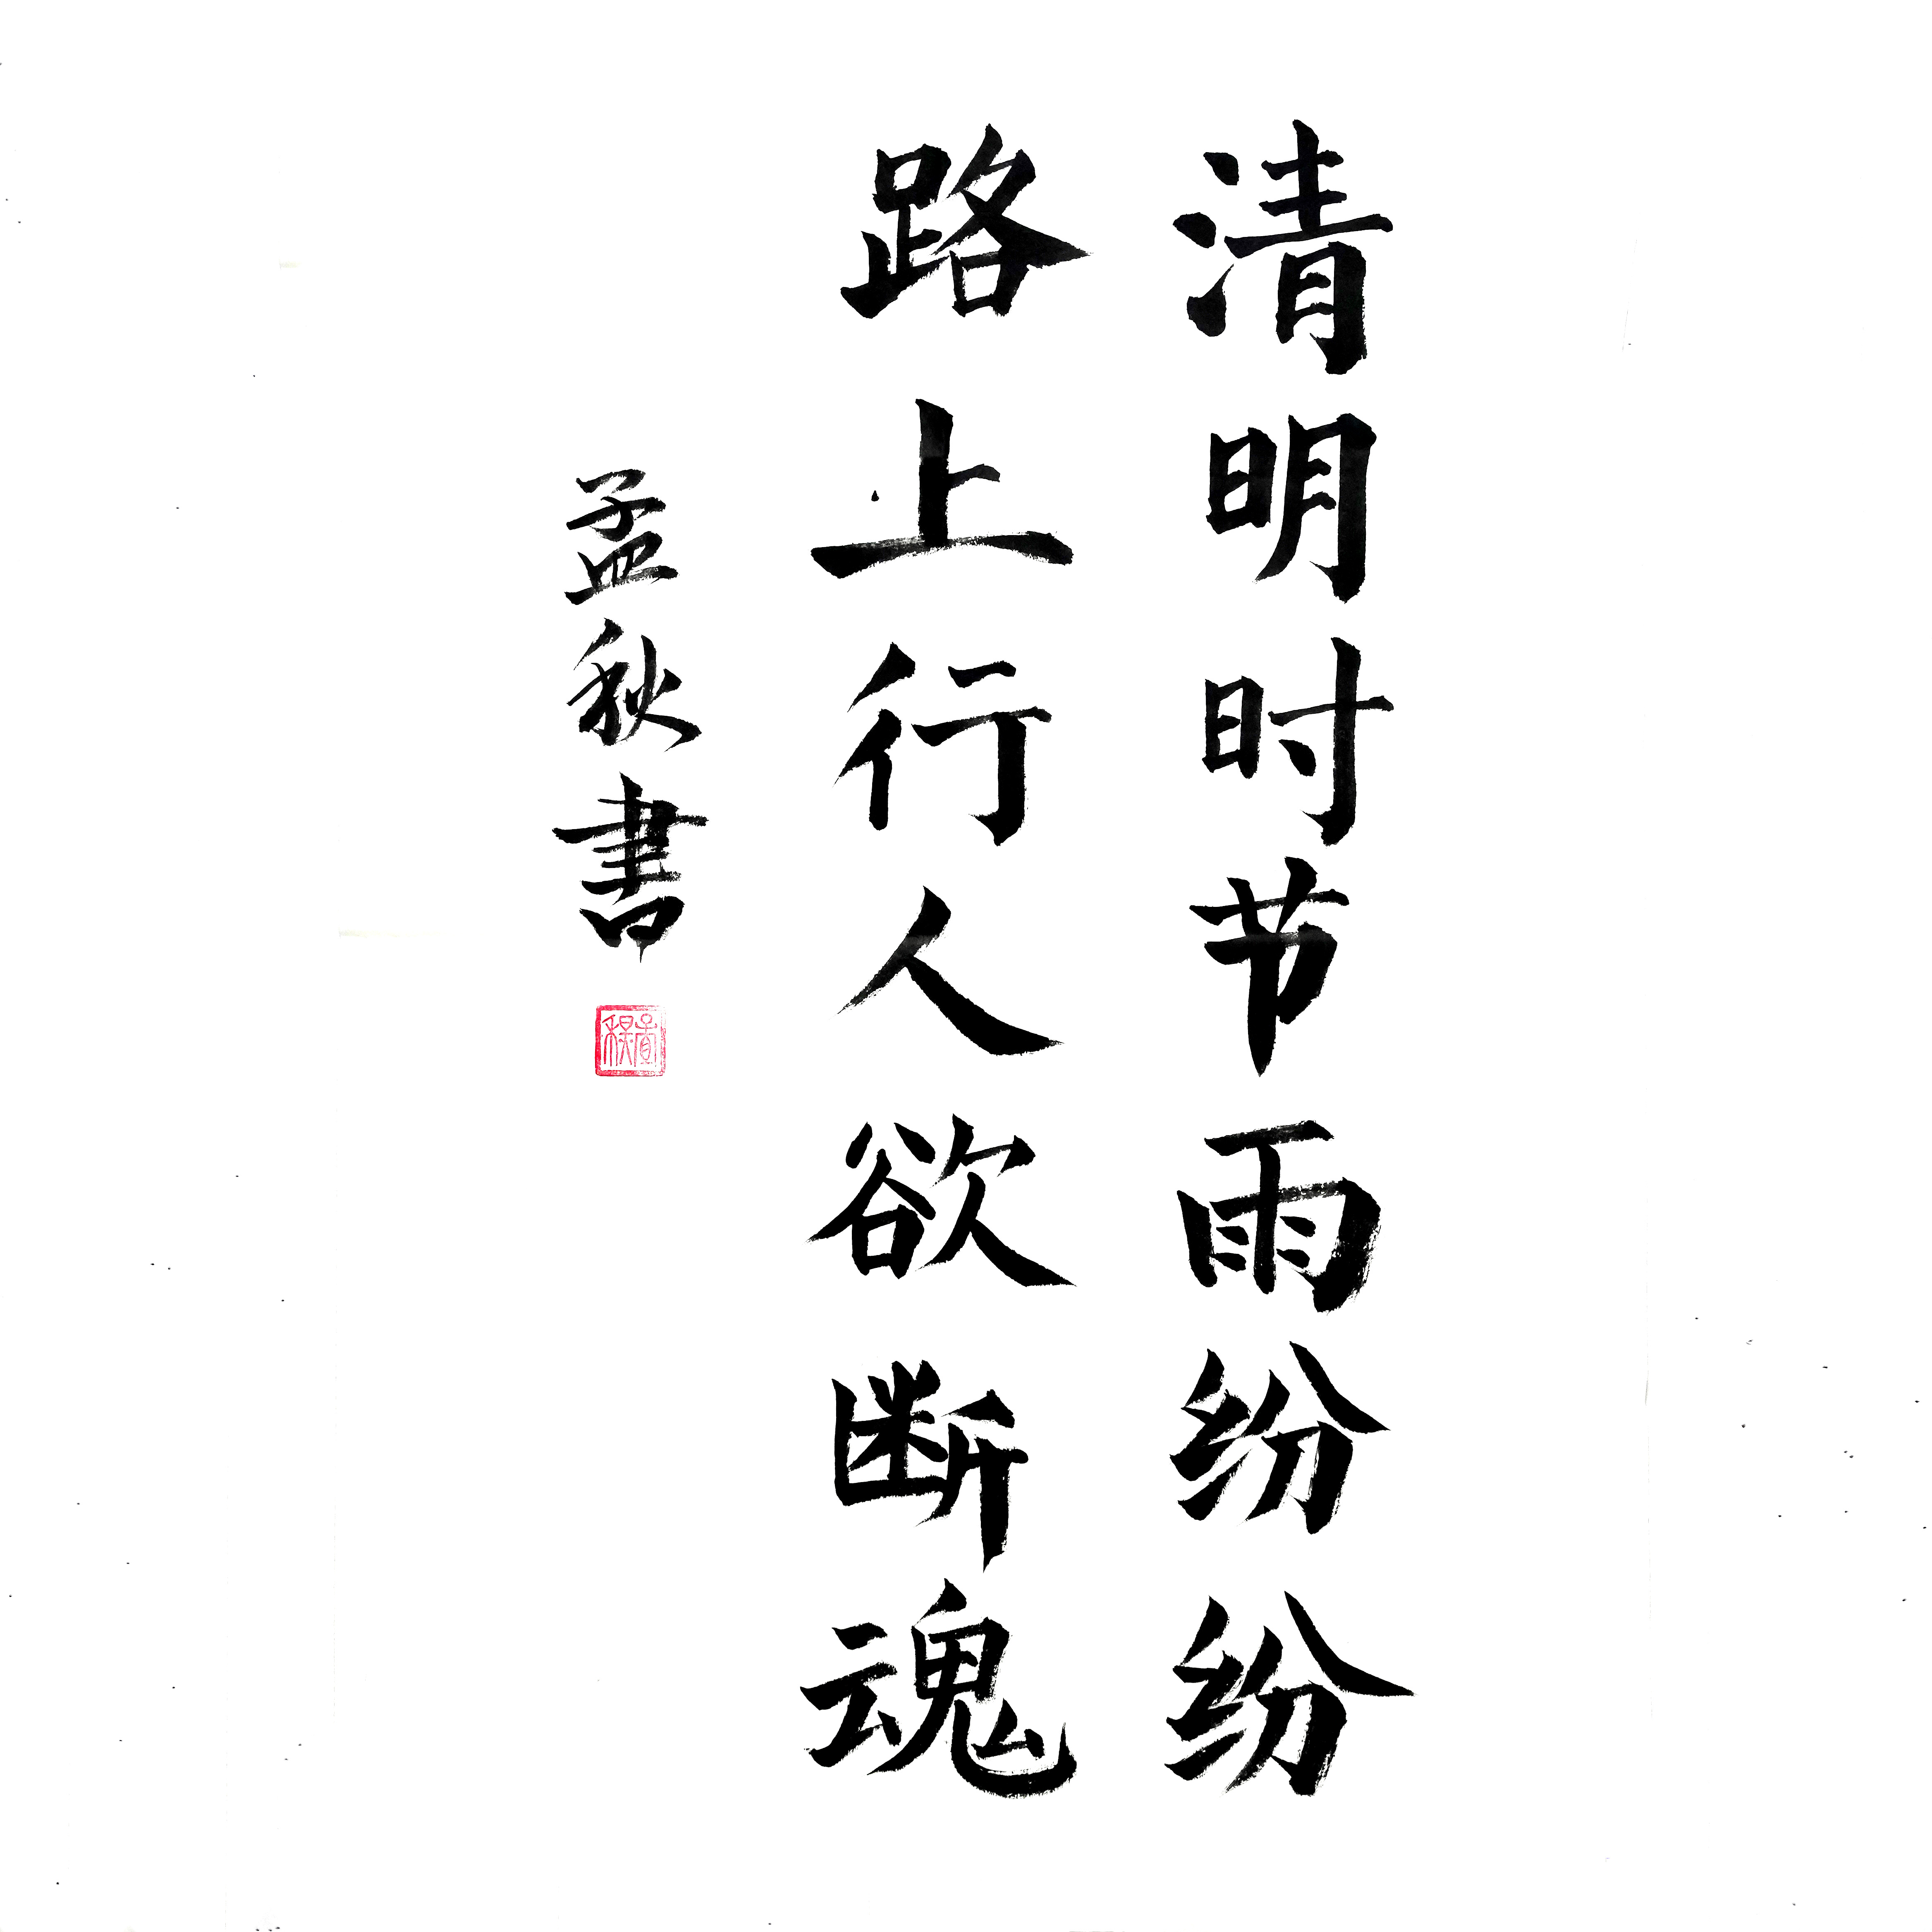 清明时节雨纷纷
路上行人欲断魂
孟秋書